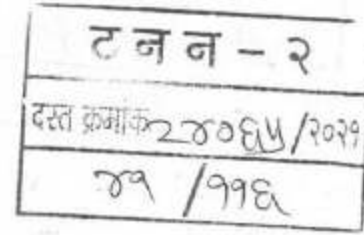 ट न न - २
दस्त क्रमांक २४०६५/२०२१
४१ /११६